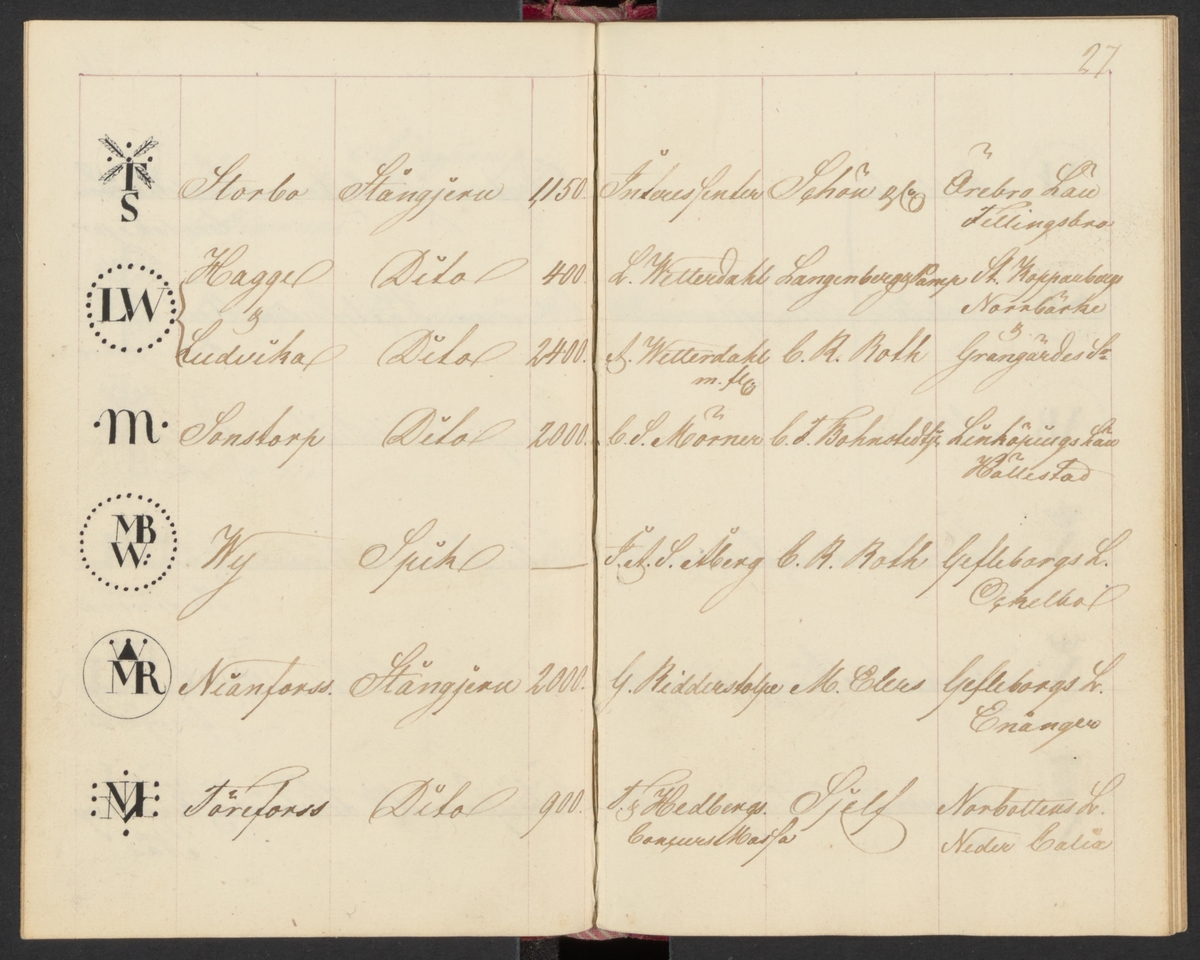 27
T
S
Storbo Stångjern 1,150. Intressenter Schön & Co Örebro Län
Fellingsbro
LW
Hagge Dito 400 L. Wetterdahl Langenberg & Kamp St. Kopparbergs
Norrbärke
&
Ludvika Dito 2400. A. Wetterdahl C. R. Roth Grangärdes Sn
m. fl.
M Sonstorp Dito 2000. C. S. Mörner C. F. Bohnstedt Linköpings Län
Hällestad
MB
W:
Wy Spik — C. R. Roth Gefleborgs L.
Ockelbo
MR
Nianforss. Stångjern 2000. G. Ridderstolpe M. Elers Gefleborgs L.
Enånger
Töreforss Dito 900. Hedbergs. Sjelf Norbottens L.
Concurs Massa Neder Calix